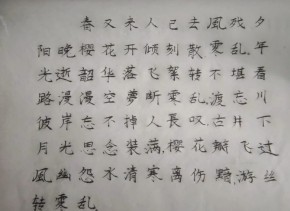 春又来人已去風残夕
阳晚樱花开倾刻散零乱,年
光逝韶华落飞絮转不堪看
路漫漫空夢断零乱,渡忘川
彼岸忘不掉人長叹古井下
月光思念裝满,樱花瓣飞过
風幽怨水清寒离伤黯,游丝
转零乱